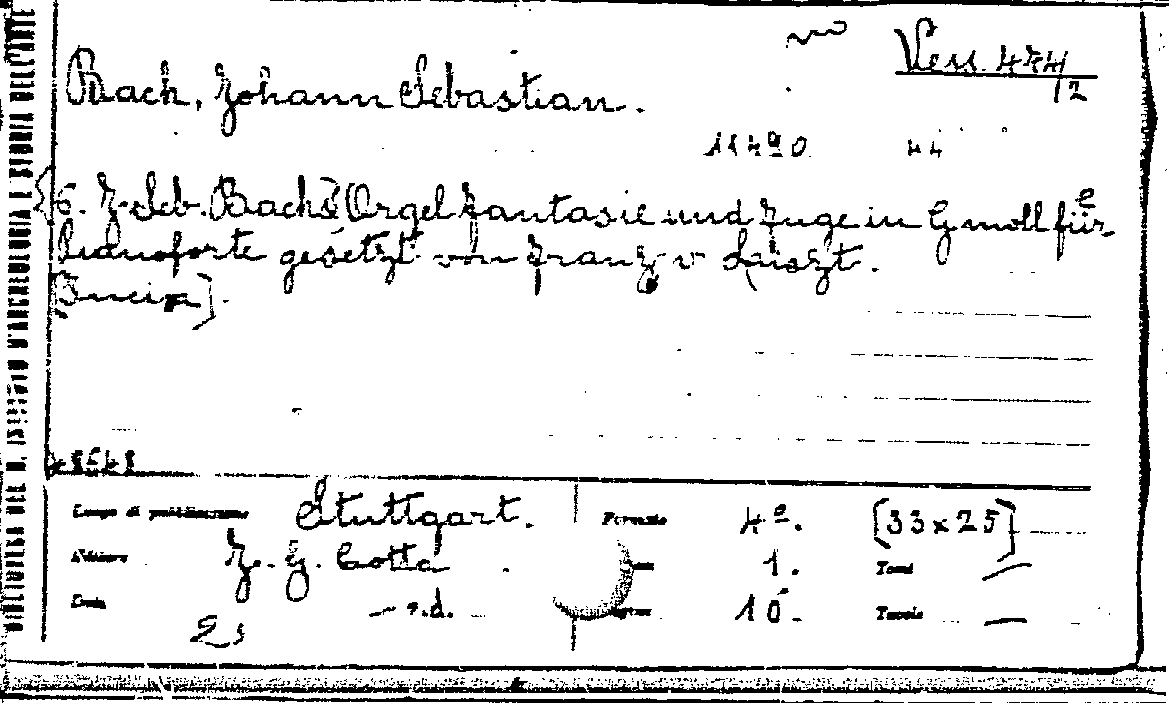 Vess. 474/2
Bach, Johann Sebastian.
11490
6. J. Seb. Bachs Orgel Fantasie und Fuge in G moll für
Pianoforte gesetzt von Franz v Liszt.
Luogo di pubblicazione Stuttgart. Formato 4º. [33 x 25]
Editore J. G. Cotta 1. Tomi —
Data s.d. 10. Tavole —
BIBLIOTECA DEL R. ISTITUTO D'ARCHEOLOGIA E STORIA DELL'ARTE